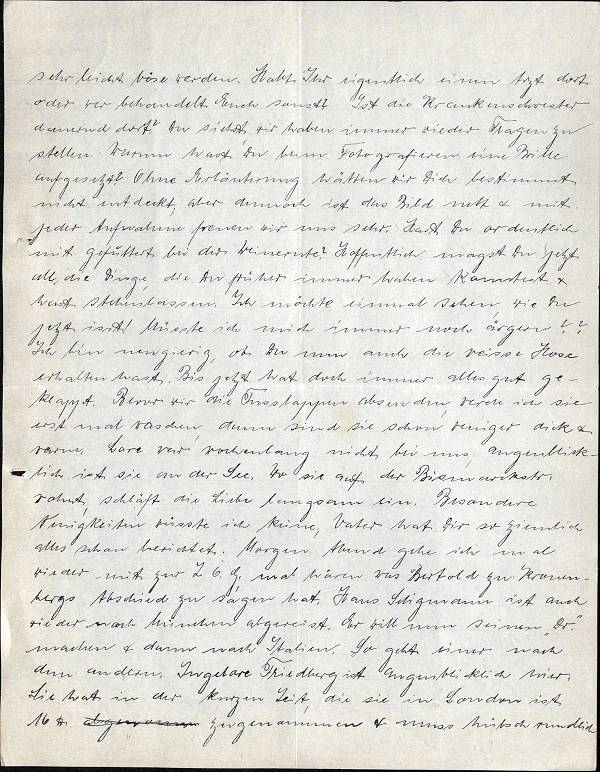 sehr leicht böse werden. Habt Ihr eigentlich einen Arzt dort
oder wer behandelt Euch sonst? Ist die Krankenschwester
dauernd dort? Du siehst wir haben immer wieder Fragen zu
stellen. Warum hast Du beim Fotografieren eine Brille
aufgesetzt? Ohne Erläuterung hätten wir Dich bestimmt
nicht entdeckt, aber dennoch ist das Bild nett & mit
jeder Aufnahme freuen wir uns sehr. Hast Du ordentlich
mit gefuttert bei der Weinernte? Hoffentlich magst Du jetzt
all die Dinge, die Du früher immer haben konntest &
hast stehenlassen. Ich möchte einmal sehen, wie Du
jetzt isst! Müsste ich mich immer noch ärgern??
Ich bin neugierig, ob Du nun auch die weisse Hose
erhalten hast. Bis jetzt hat doch immer alles gut ge-
klappt. Bevor wir die Fusslappen absenden, werde ich sie
erst mal waschen, dann sind sie schon weniger dick &
warm. Lore war wochenlang nicht bei uns, augenblick-
lich ist sie an der See. Wo sie auf der Bismarckstr.
wohnt, schläft die Liebe langsam ein. Besondere
Neuigkeiten wüsste ich keine, Vater hat Dir so ziemlich
alles schon berichtet. Morgen Abend gehe ich mal
wieder mit zur Z. O. G. mal hören was Bertold zu Kronen-
bergs Abschied zu sagen hat. Hans Seligmann ist auch
wieder nach München abgereist. Er will nun seinen „Dr."
machen & dann nach Italien. So geht einer nach
dem andern. Ingelore Friedberg ist augenblicklich hier.
Sie hat in der kurzen Zeit, die sie in London ist
16 ℔. abgenommen zugenommen & muss hübsch rundlich